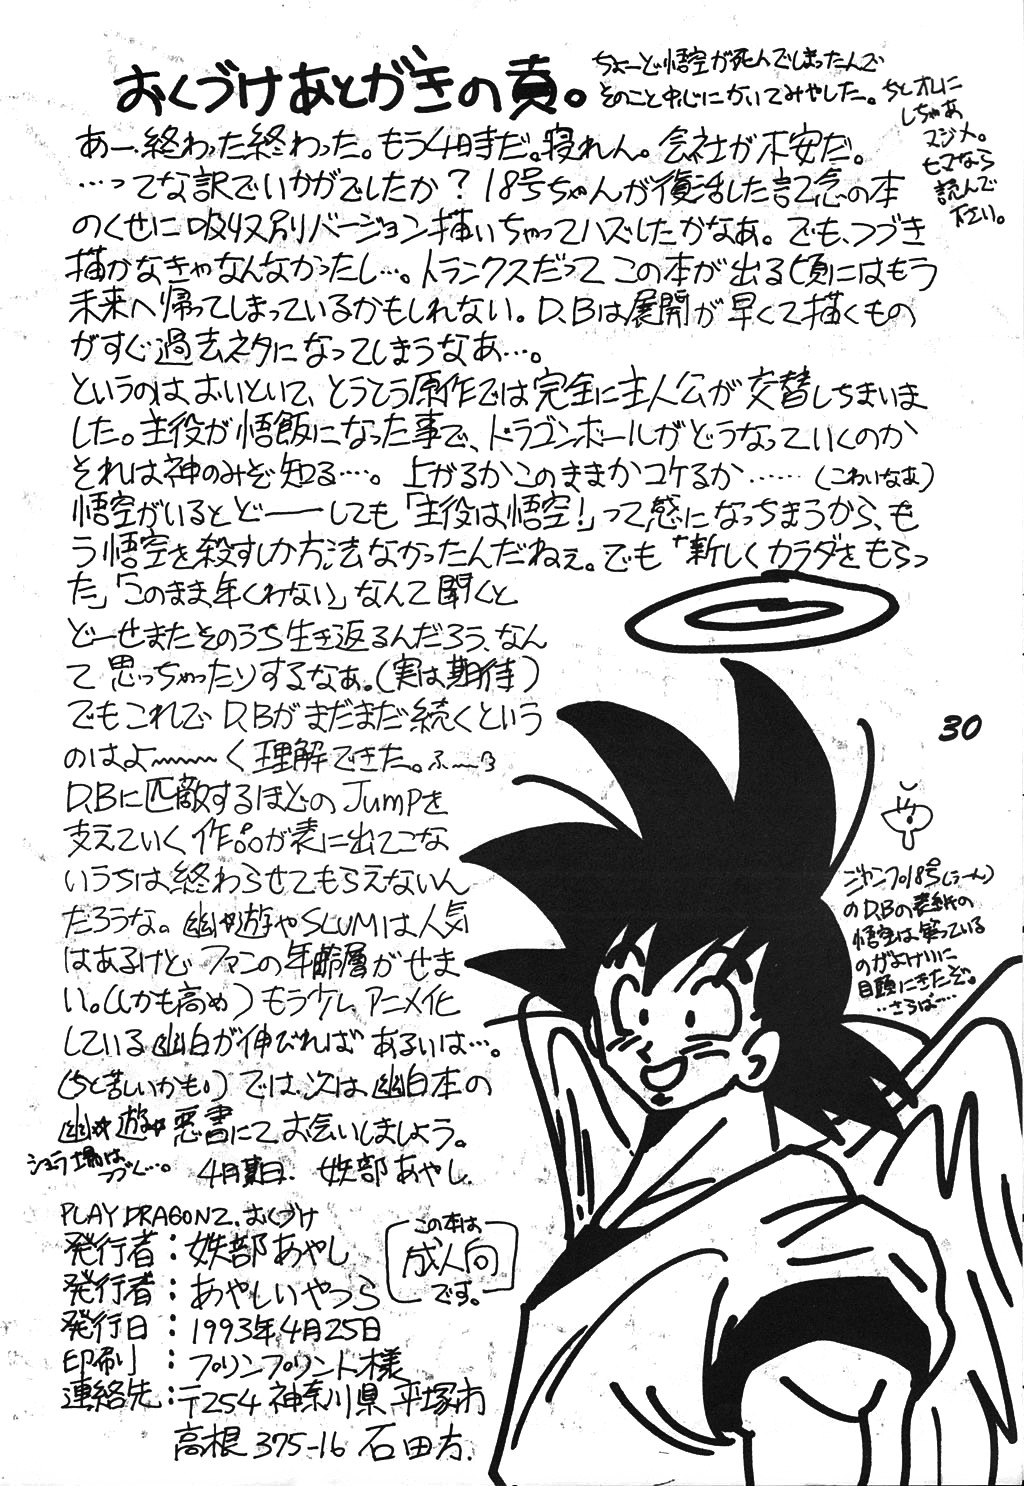 おくづけあとがきの頁。
ちょーどど悟空が死んでしまったんで
そのこと中心にかいてみやした。ちとオレに
しちゃあ
マジメ。
ヒマなら
読んで
下さい。
あー、終わった終わった。もう4時だ。寝れん。会社が不安だ。
…ってな訳でいかがでしたか？18号ちゃんが復活した記念の本
のくせに吸収別バージョン描いちゃってハズしたかなあ。でも、つづき
描かなきゃなんなかったし…。トランクスだってこの本が出る頃にはもう
未来へ帰ってしまっているかもしれない。D.Bは展開が早くて描くもの
がすぐ過去ネタになってしまうなあ…。
というのはおいといて、とうとう原作では完全に主人公が交替しちまいま
した。主役が悟飯になった事で、ドラゴンボールがどうなっていくのか
それは神のみぞ知る…。上がるかこのままかコケるか……（こわいなあ）
悟空がいるとどーーしても「主役は悟空！」って感になっちまうから、も
う悟空を殺すしか方法なかったんだねぇ。でも「新しくカラダをもらっ
た」「このまま年くわない」なんて聞くと
どーせまたそのうち生き返るんだろう、なん
て思っちゃったりするなぁ。（実は期待）
でもこれでD.Bがまだまだ続くという
のはよ〜〜〜く理解できた。ふーー3
D.Bに匹敵するほどのJUMPを
支えていく作品が表に出てこな
いうちは終わらせてもらえないん
だろうな。幽☆遊やSLUMは人気
はあるけど ファンの年齢層がせま
い。（しかも高め）もうケレアニメ化
している幽白が伸びれば あるいは…。
（ちと苦しいかも。）では、次は幽白本の
幽☆遊☆悪書にてお会いしましょう。
シュラ場は
つづく…。
4月某日. 妖部あやし.
30
ジャンプ18号（うーん）
のD.Bの表紙の
悟空は笑っている
のがよけいに
目頭にきたぞ。
…さらば…
PLAY DRAGON 2. おくづけ
発行者：妖部あやし
発行者：あやしいやつら
発行日：1993年4月25日
印刷：プリンプリント様
連絡先：〒254 神奈川県平塚市
高根375-16 石田方.
この本は
成人向
です。